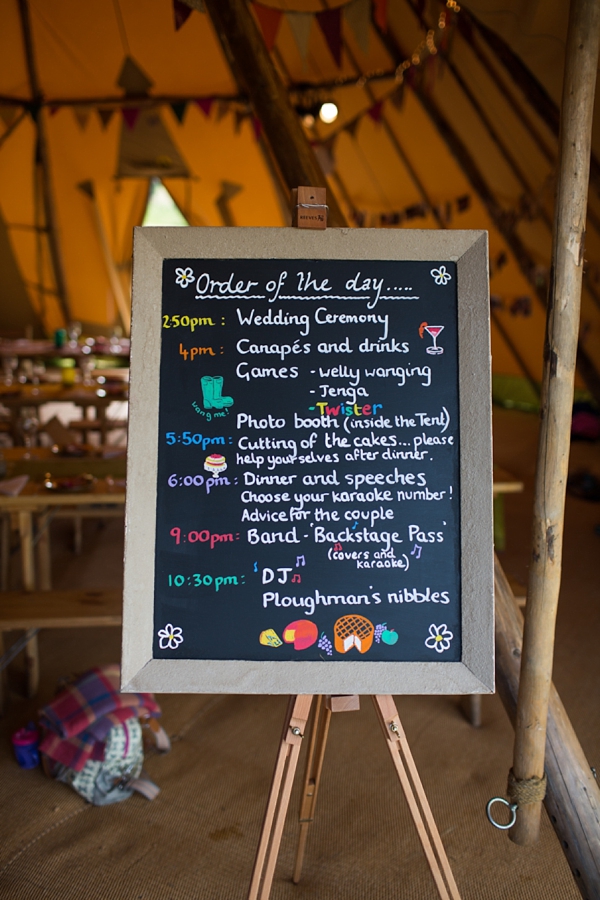 Order of the day.....
2:50pm : Wedding Ceremony
4pm : Canapés and drinks
Games - welly wanging
- Jenga
wang me!
- Twister
Photo booth (inside the Tent)
5:50pm : Cutting of the cakes... please
help yourselves after dinner.
6:00pm : Dinner and speeches
Choose your karaoke number!
Advice for the couple
9:00pm : Band - 'Backstage Pass'
(covers and
karaoke)
10:30pm : DJ
Ploughman's nibbles